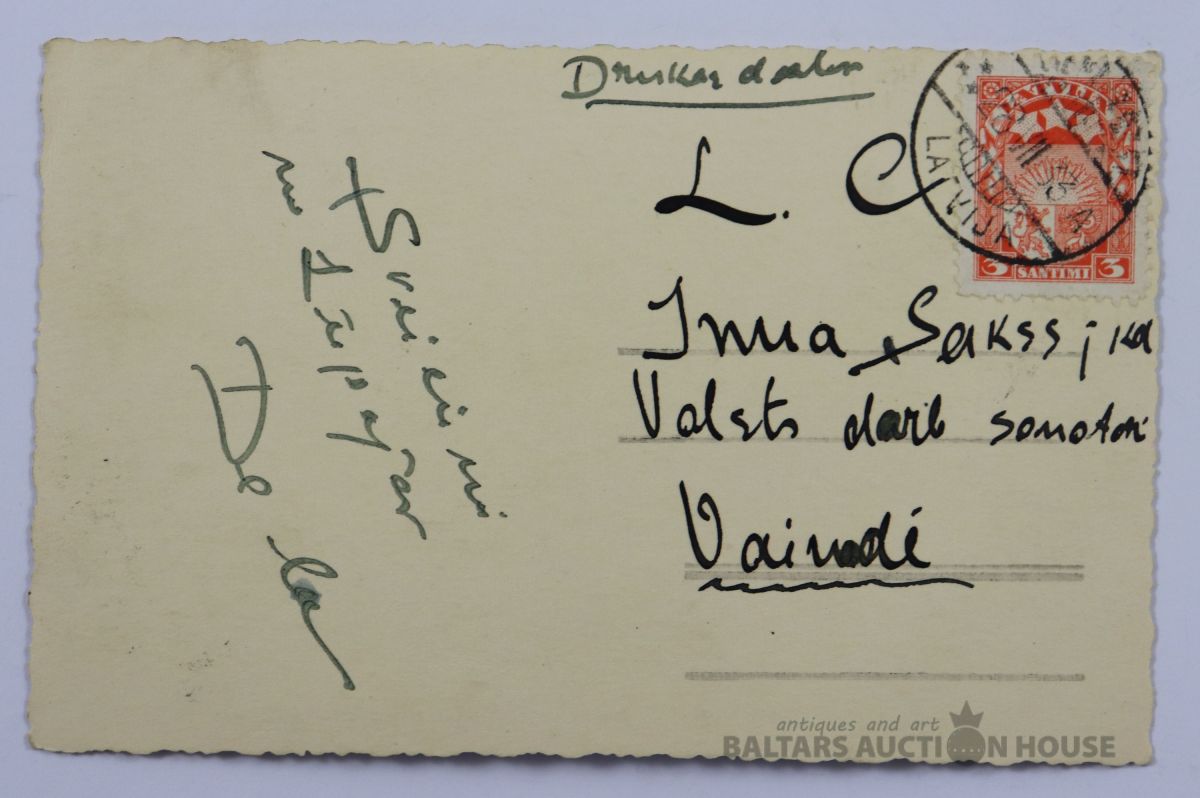 Drukas darbs
L. C
LATVIJA
3 SANTIMI 3
LATVIJA
Inua Sakss; ka
Valsts darb sanatori
Vaiņodē
Sveicieni
no Liepājas
antiques and art
BALTARS AUCTION HOUSE